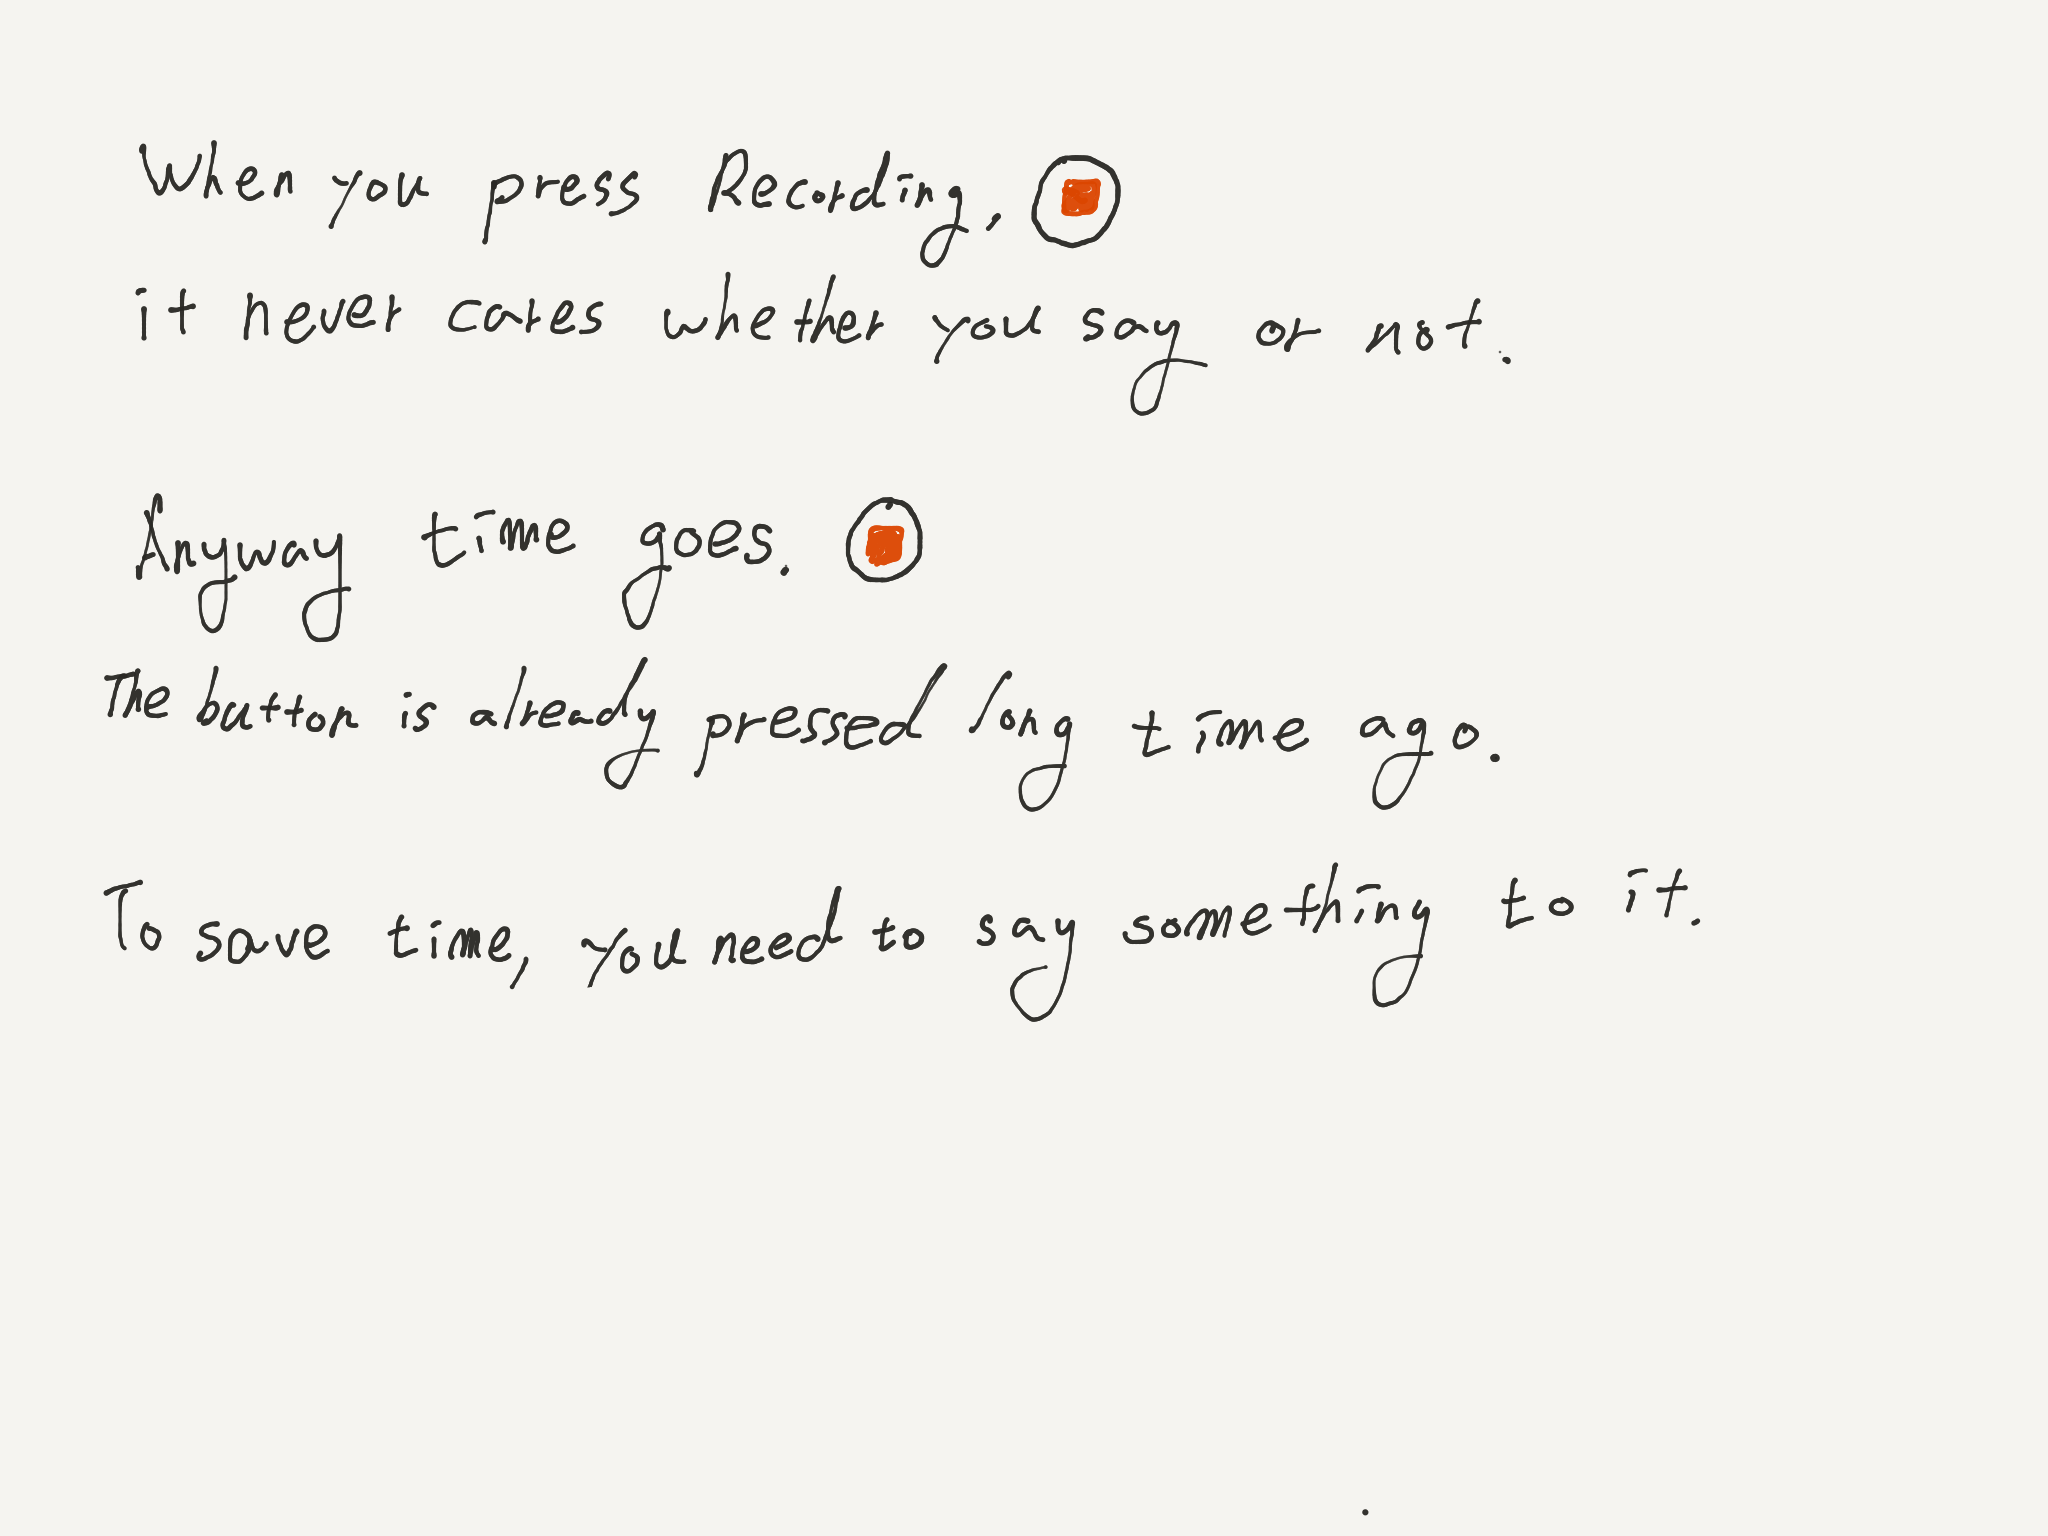 When you press Recording,
it never cares whether you say or not.
Anyway time goes.
The button is already pressed long time ago.
To save time, you need to say something to it.